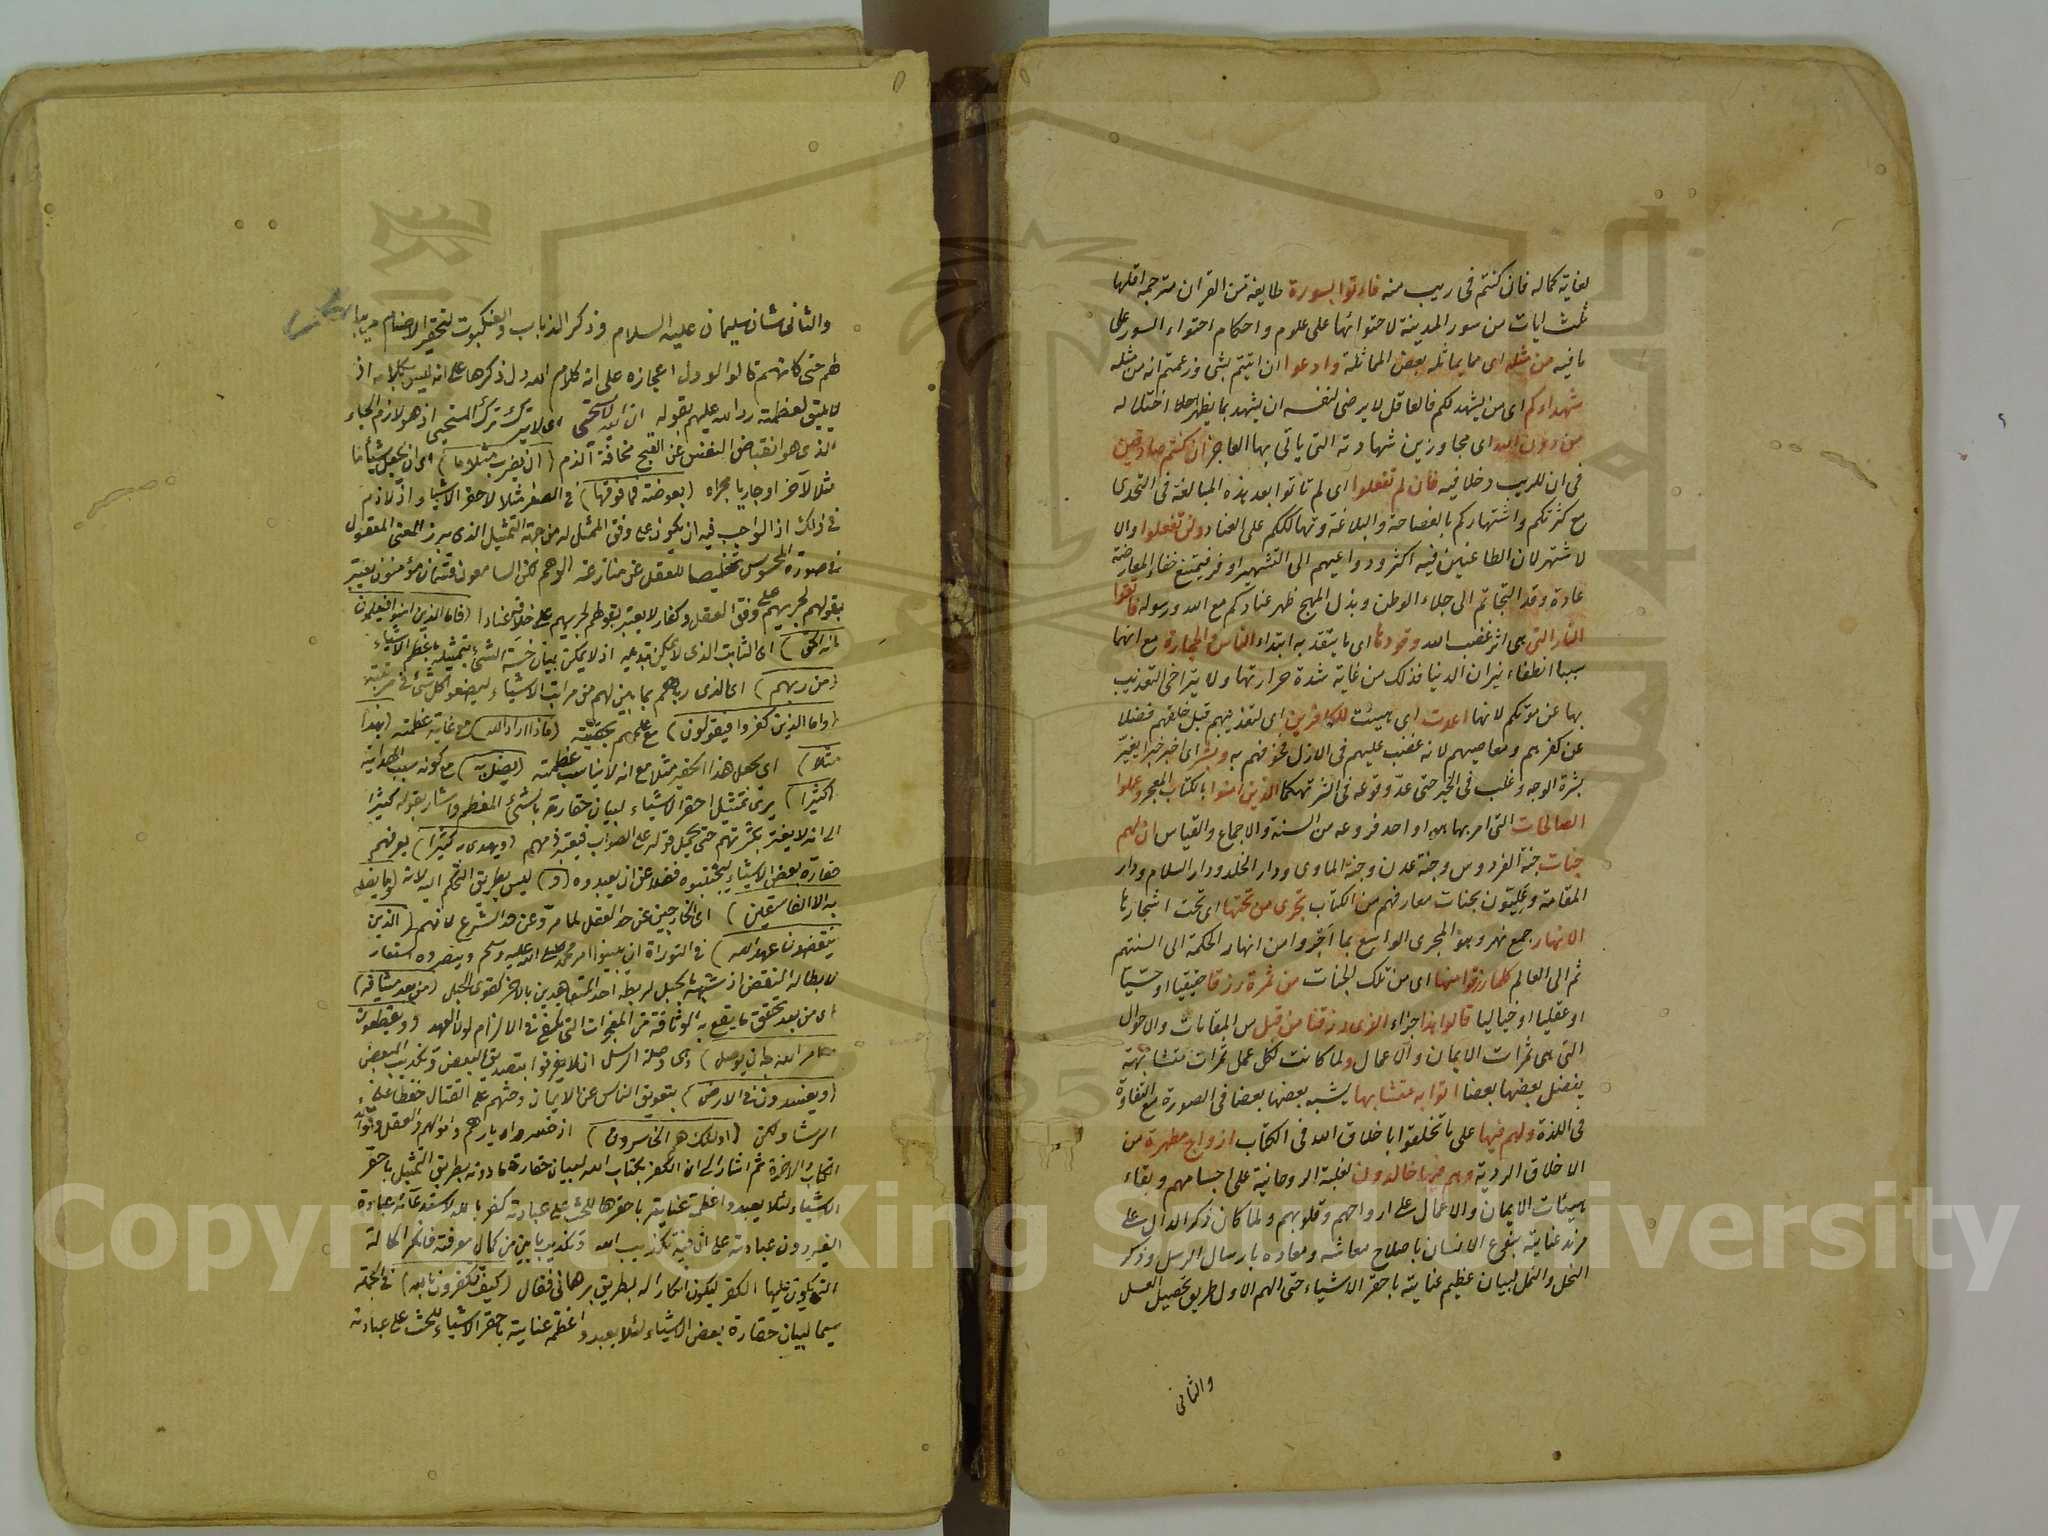 لغاية كماله فان كنتم فى ريب منه فاءتوا بسورة طايفة من القران مترجمة اقلها
ثلث ايات من سور المدينة لاحتوائها على علوم واحكام احتواء السور على
ما فيه من مثله اى مما يماثله بعض المماثلة وادعوا ان اتيتم بشى وزعمتم انه من مثله
شهداءكم اى من يشهد لكم فالعاقل لا يرضى لنفسه ان يشهد بما يظهر اختلاله
من دون الله اى مجاوزين شهادته التى ياتى بها العاجز ان كنتم صادقين
فى ان للريب دخلا فيه فان لم تفعلوا اى لم تاتوا بعد هذه المبالغة فى التحدى
مع كثرتكم واشتهاركم بالفصاحة والبلاغة وتهالككم على العناد ولن تفعلوا والا
لاشتهر لان الطاعنين فيه اكثر ودواعيهم الى التشهير اوفر فيمتنع خفاء المعارضة
عادة وقد التجاتم الى جلاء الوطن وبذل المهج ظهر عنادكم مع الله ورسوله فاتقوا
النار التى هى اثر غضب الله وقودها اى ما يتقد به ابتداء الناس والحجارة مع انهما
سببا انطفاء نيران الدنيا فذلك من غاية شدة حرارتها ولا يتراخى التعذيب
بها عن موتكم لانها اعدت اى هيئت للكافرين اى لتعذيبهم قبل خلقهم فضلا
عن كفرهم ومعاصيهم لانه غضب عليهم فى الازل فخوفهم به وبشر اى اخبر خبرا يغير
بشرة الوجه وغلب فى الخير حتى عد وقوعه فى الشر تهكما الذين امنوا بالكتاب المعجز وعملوا
الصالحات التى امر بها هو او احد فروعه من السنة والاجماع والقياس ان لهم
جنات جنة الفردوس وجنة عدن وجنة الماوى ودار الخلد ودار السلام ودار
المقامة وعليون بجنات معارفهم من الكتاب تجرى من تحتها اى تحت اشجارها
الانهار جمع نهر وهو المجرى الواسع بما اجروا من انهار الحكمة الى السنتهم
ثم الى العالم كلما رزقوا منها اى من تلك الجنات من ثمرة رزقا حقيقيا او حسيا
او عقليا او خياليا قالوا هذا جزاء الذى رزقنا من قبل من المقامات والاحوال
التى هى ثمرات الايمان والاعمال ولما كانت لكل عمل ثمرات متشابهة
يفضل بعضها بعضا اتوا به متشابها يشبه بعضها بعضا فى الصورة مع التفاوة
فى اللذة ولهم فيها على ما تخلقوا باخلاق الله فى الكتاب ازواج مطهرة من
الاخلاق الردية وهم فيها خالدون لغلبة الروحانية على اجسامهم وبقاء
هيئات الايمان والاعمال على ارواحهم وقلوبهم ولما كان ذكر الدال على
مزيد عنايته بنوع الانسان باصلاح معاشه ومعاده بارسال الرسل وذكر
النحل والنمل لبيان عظيم عنايته باحقر الاشياء حتى الهم الاول طريق تحصيل العسل
والثانى
والثانى شان سليمان عليه السلام وذكر الذباب والعنكبوت لتحقير الاصنام
لهم حتى كانهم قالوا لو دل اعجازه على انه كلام الله دل ذكرها على انه ليس بكلامه اذ
لا يليق لعظمته رد الله عليهم بقوله ان الله لا يستحى اى لا يترك ترك المستحيى اذ هو لازم الحياء
الذى هو انقباض النفس عن القبح مخافة الذم (ان يضرب مثلا ما) اى ان يجعل شيئا ما
مثلا لاخر او جاريا مجراه (بعوضة فما فوقها) فى الصغر مثلا لاحقر الاشياء اذ لا ذم
فى ذلك اذ الواجب فيه ان يكون على وفق الممثل له من جهة التمثيل الذى يبرز المعنى المعقول
فى صورة المحسوس تخليصا للعقل عن منازعة الوهم لكن السامعون قسمان مؤمنون يعتبر
بقولهم لجريهم على وفق العقل وكفار لا يعتبر بقولهم لجريهم على خلافه عنادا (فاما الذين امنوا فيعلمون
انه الحق) اى الثابت الذى لا يمكن تبدعيه اذ لا يمكن بيان خسة الشئ بتمثيله باعظم الاشياء
(من ربهم) اى الذى رباهم بما بين لهم من مراتب الاشياء ليضعوا كل شئ فى مرتبته
(واما الذين كفروا فيقولون) مع علمهم بحقيته (ماذا اراد الله) مع غاية عظمته (بهذا
مثلا) اى يجعل هذا الحقير مثلا مع انه لا يناسب عظمته (يضل به) مع كونه سبب الهداية
(كثيرا) يرى تمثيل احقر الاشياء لبيان حقارته بالشئ المعظم واشار بقوله كثيرا
الى انه لا يغتر بكثرتهم حتى يحمل قوله على الصواب فيعتبر ذمهم (ويهدى به كثيرا) يعرفهم
حقارة بعض الاشياء ليجتنبوه فضلا عن ان يعبدوه (و) ليس بطريق التحكم اليه لانه (ما يضل
به الا الفاسقين) اى الخارجين عن حد العقل لما مر وعن حد الشرع لانهم (الذين
ينقضون عهد الله) فى التوراة ان يبينوا امر محمد صلى الله عليه وسلم وينصروه استعار
لابطاله النقض اذ شبهه بالحبل لربطه احد المتعاهدين بالاخر كقوى الحبل (من بعد ميثاقه)
اى من بعد تحقق ما يقع به الوثاقة من المعجزات التى تكفى فى الالزام لولا العهد (ويقطعون
ما امر الله به ان يوصل) وهى وصلة الرسل ان لا يفرقوا بتصديق البعض وتكذيب البعض
(ويفسدون فى الارض) بتعويق الناس عن الايمان وحثهم على القتال حفظا على
الرشا ولكن (اولئك هم الخاسرون) اذ خسروا ديارهم واموالهم والعقل
الكتاب والاخرة ثم اشار الى ان الكفر بكتاب الله لبيان حقارة ما دونه بطريق التمثيل باحقر
الاشياء لئلا يعبد واعظمه عنايته باحقرها للحث على عبادته كفر بالله لاستدعائه عبادة
الغير دون عبادته على ان فيه تكذيب الله وتكذيب ما بين من كمال معرفته فانكر الحالة
التى يكون عليها الكفر ليكون انكارا له بطريق برهانى فقال (كيف تكفرون بالله) فى الجملة
سيما لبيان حقارة بعض الاشياء لئلا يعبد واعظمه عنايته باحقر الاشياء للحث على عبادته
Copyright © King Saud University
1957